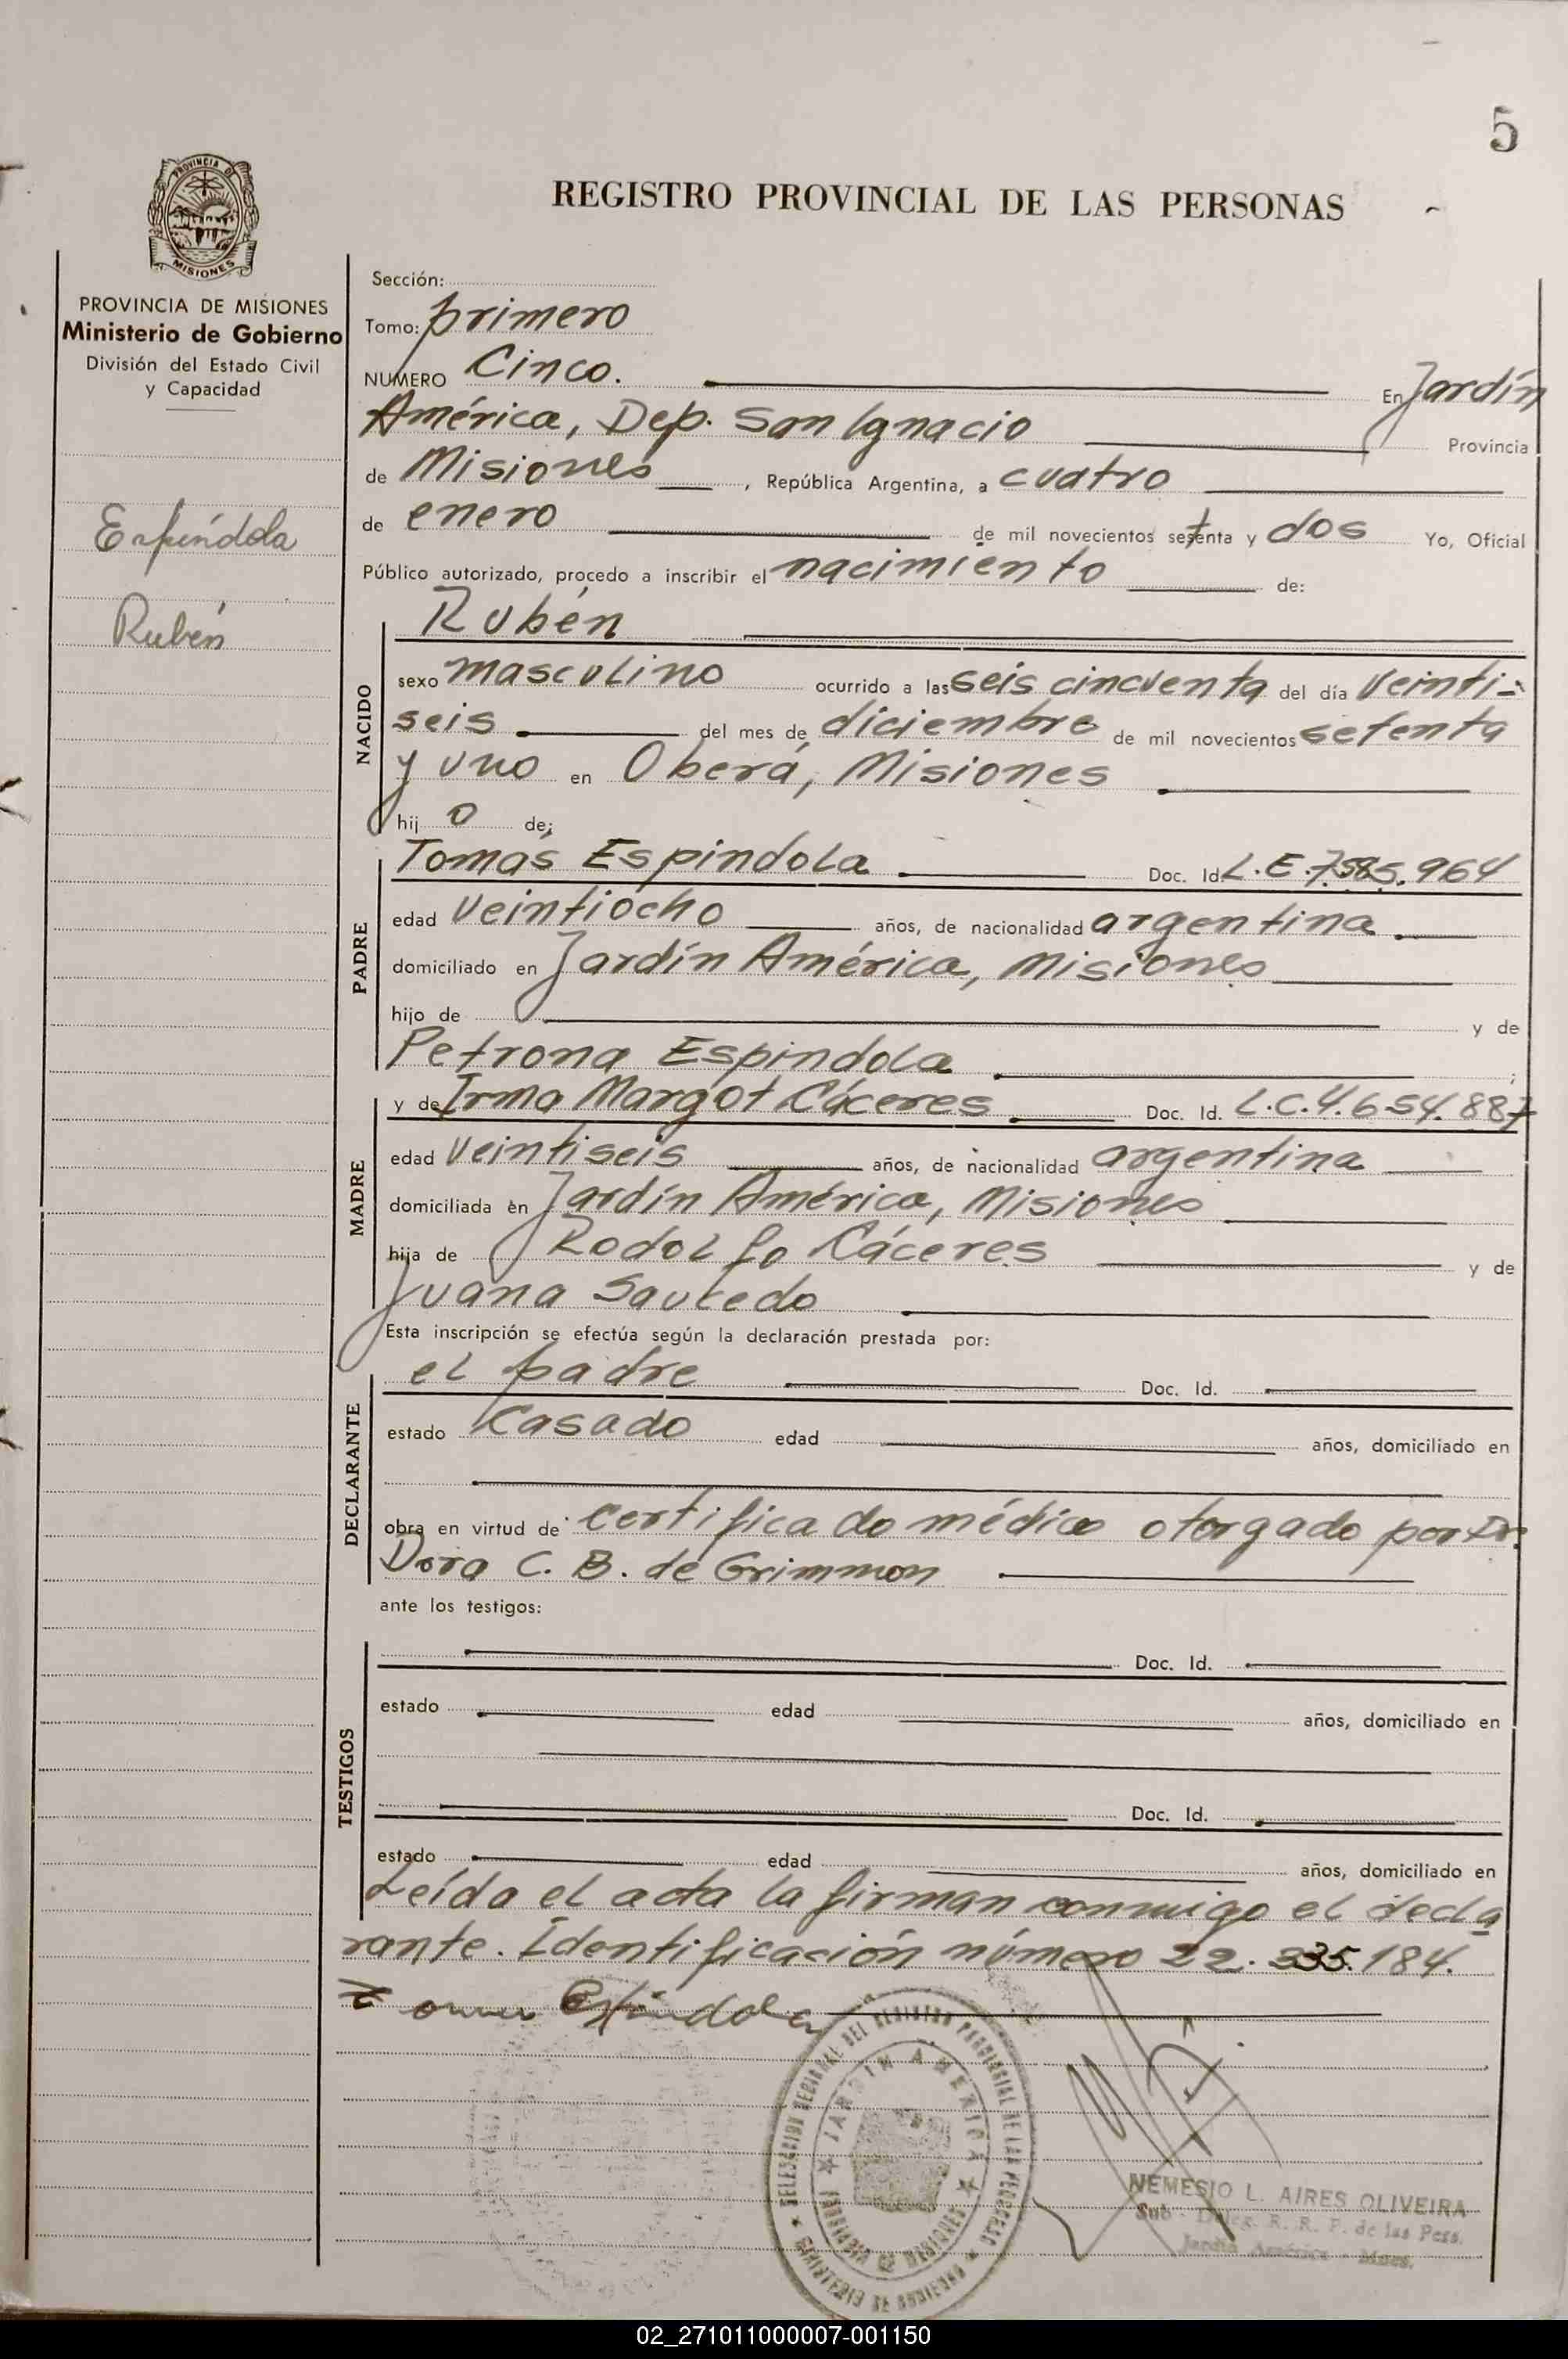 5
PROVINCIA DE
MISIONES
REGISTRO PROVINCIAL DE LAS PERSONAS
PROVINCIA DE MISIONES
Ministerio de Gobierno
División del Estado Civil
y Capacidad
Espíndola
Rubén
Sección:
Tomo: primero
NUMERO Cinco. En Jardín
América, Dep. San Ignacio Provincia
de Misiones, República Argentina, a cuatro
de enero de mil novecientos setenta y dos Yo, Oficial
Público autorizado, procedo a inscribir el nacimiento de:
NACIDO
Rubén
sexo masculino ocurrido a las seis cincuenta del día veinti-
seis del mes de diciembre de mil novecientos setenta
y uno en Oberá, Misiones
hijo de:
PADRE
Tomás Espindola Doc. Id. L.E.7.585.964
edad veintiocho años, de nacionalidad argentina
domiciliado en Jardín América, Misiones
hijo de y de
Petrona Espindola ;
MADRE
y de Irma Margot Cáceres Doc. Id. L.C.4.654.887
edad veintiseis años, de nacionalidad argentina
domiciliada en Jardín América, Misiones
hija de Rodolfo Cáceres y de
Juana Saucedo
Esta inscripción se efectúa según la declaración prestada por:
DECLARANTE
el padre Doc. Id.
estado Casado edad años, domiciliado en
obra en virtud de certificado médico otorgado por Dr.
Dora C. B. de Grimmon
ante los testigos:
TESTIGOS
Doc. Id.
estado edad años, domiciliado en
Doc. Id.
estado edad años, domiciliado en
Leída el acta la firman conmigo el decla
rante. Identificación número 22.335.184.
Espindola
DELEGACION REGIONAL DEL REGISTRO PROVINCIAL DE LAS PERSONAS
JARDIN AMERICA
PROVINCIA DE MISIONES
MINISTERIO DE GOBIERNO
NEMESIO L. AIRES OLIVEIRA
Sub - Deleg. R. R. P. de las Pers.
Jardín América - Mnes.
02_271011000007-001150